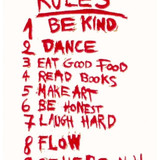 RULES
1 BE KIND
2 DANCE
3 EAT GOOD FOOD
4 READ BOOKS
5 MAKE ART
6 BE HONEST
7 LAUGH HARD
8 FLOW